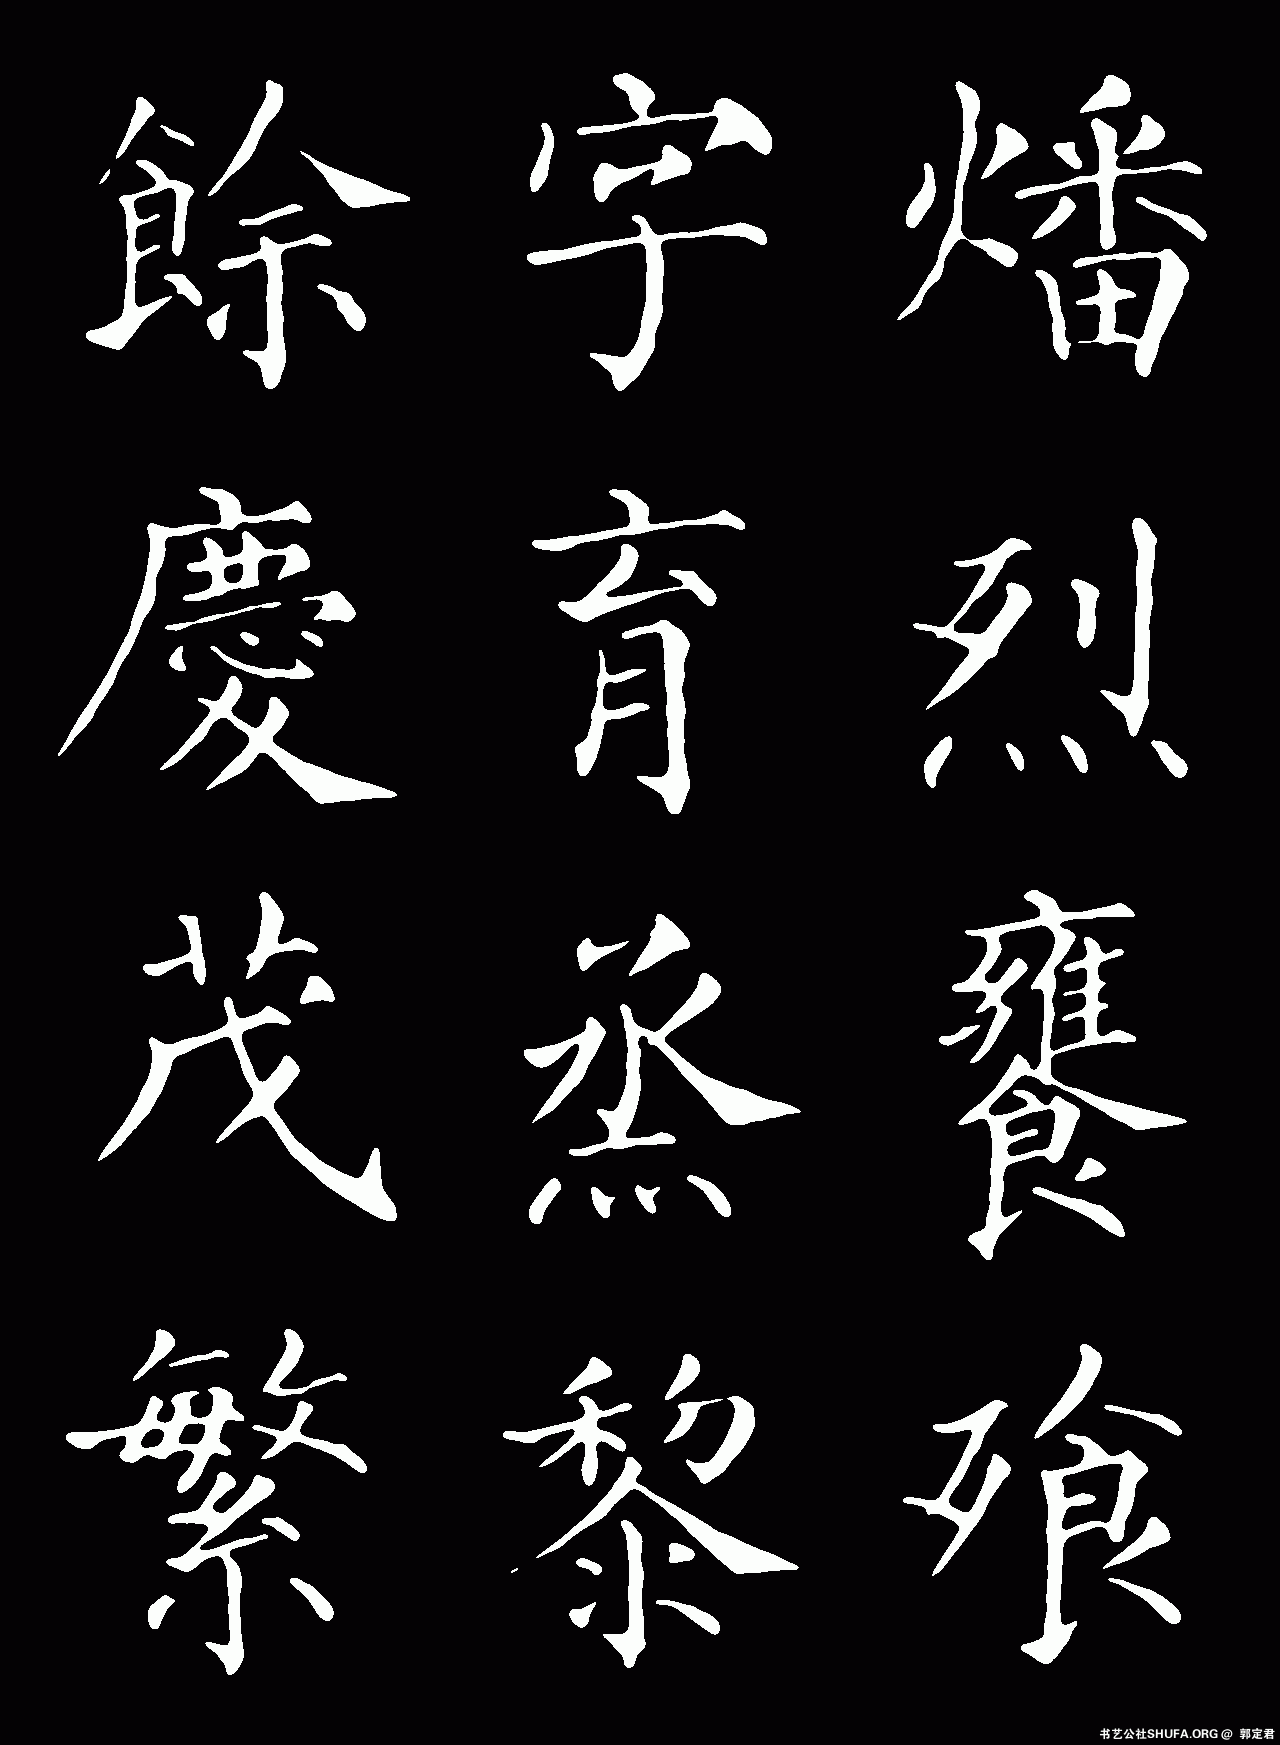 燔烈饔飧
字育蒸黎
餘慶茂繁
书艺公社SHUFA.ORG @ 郭定君